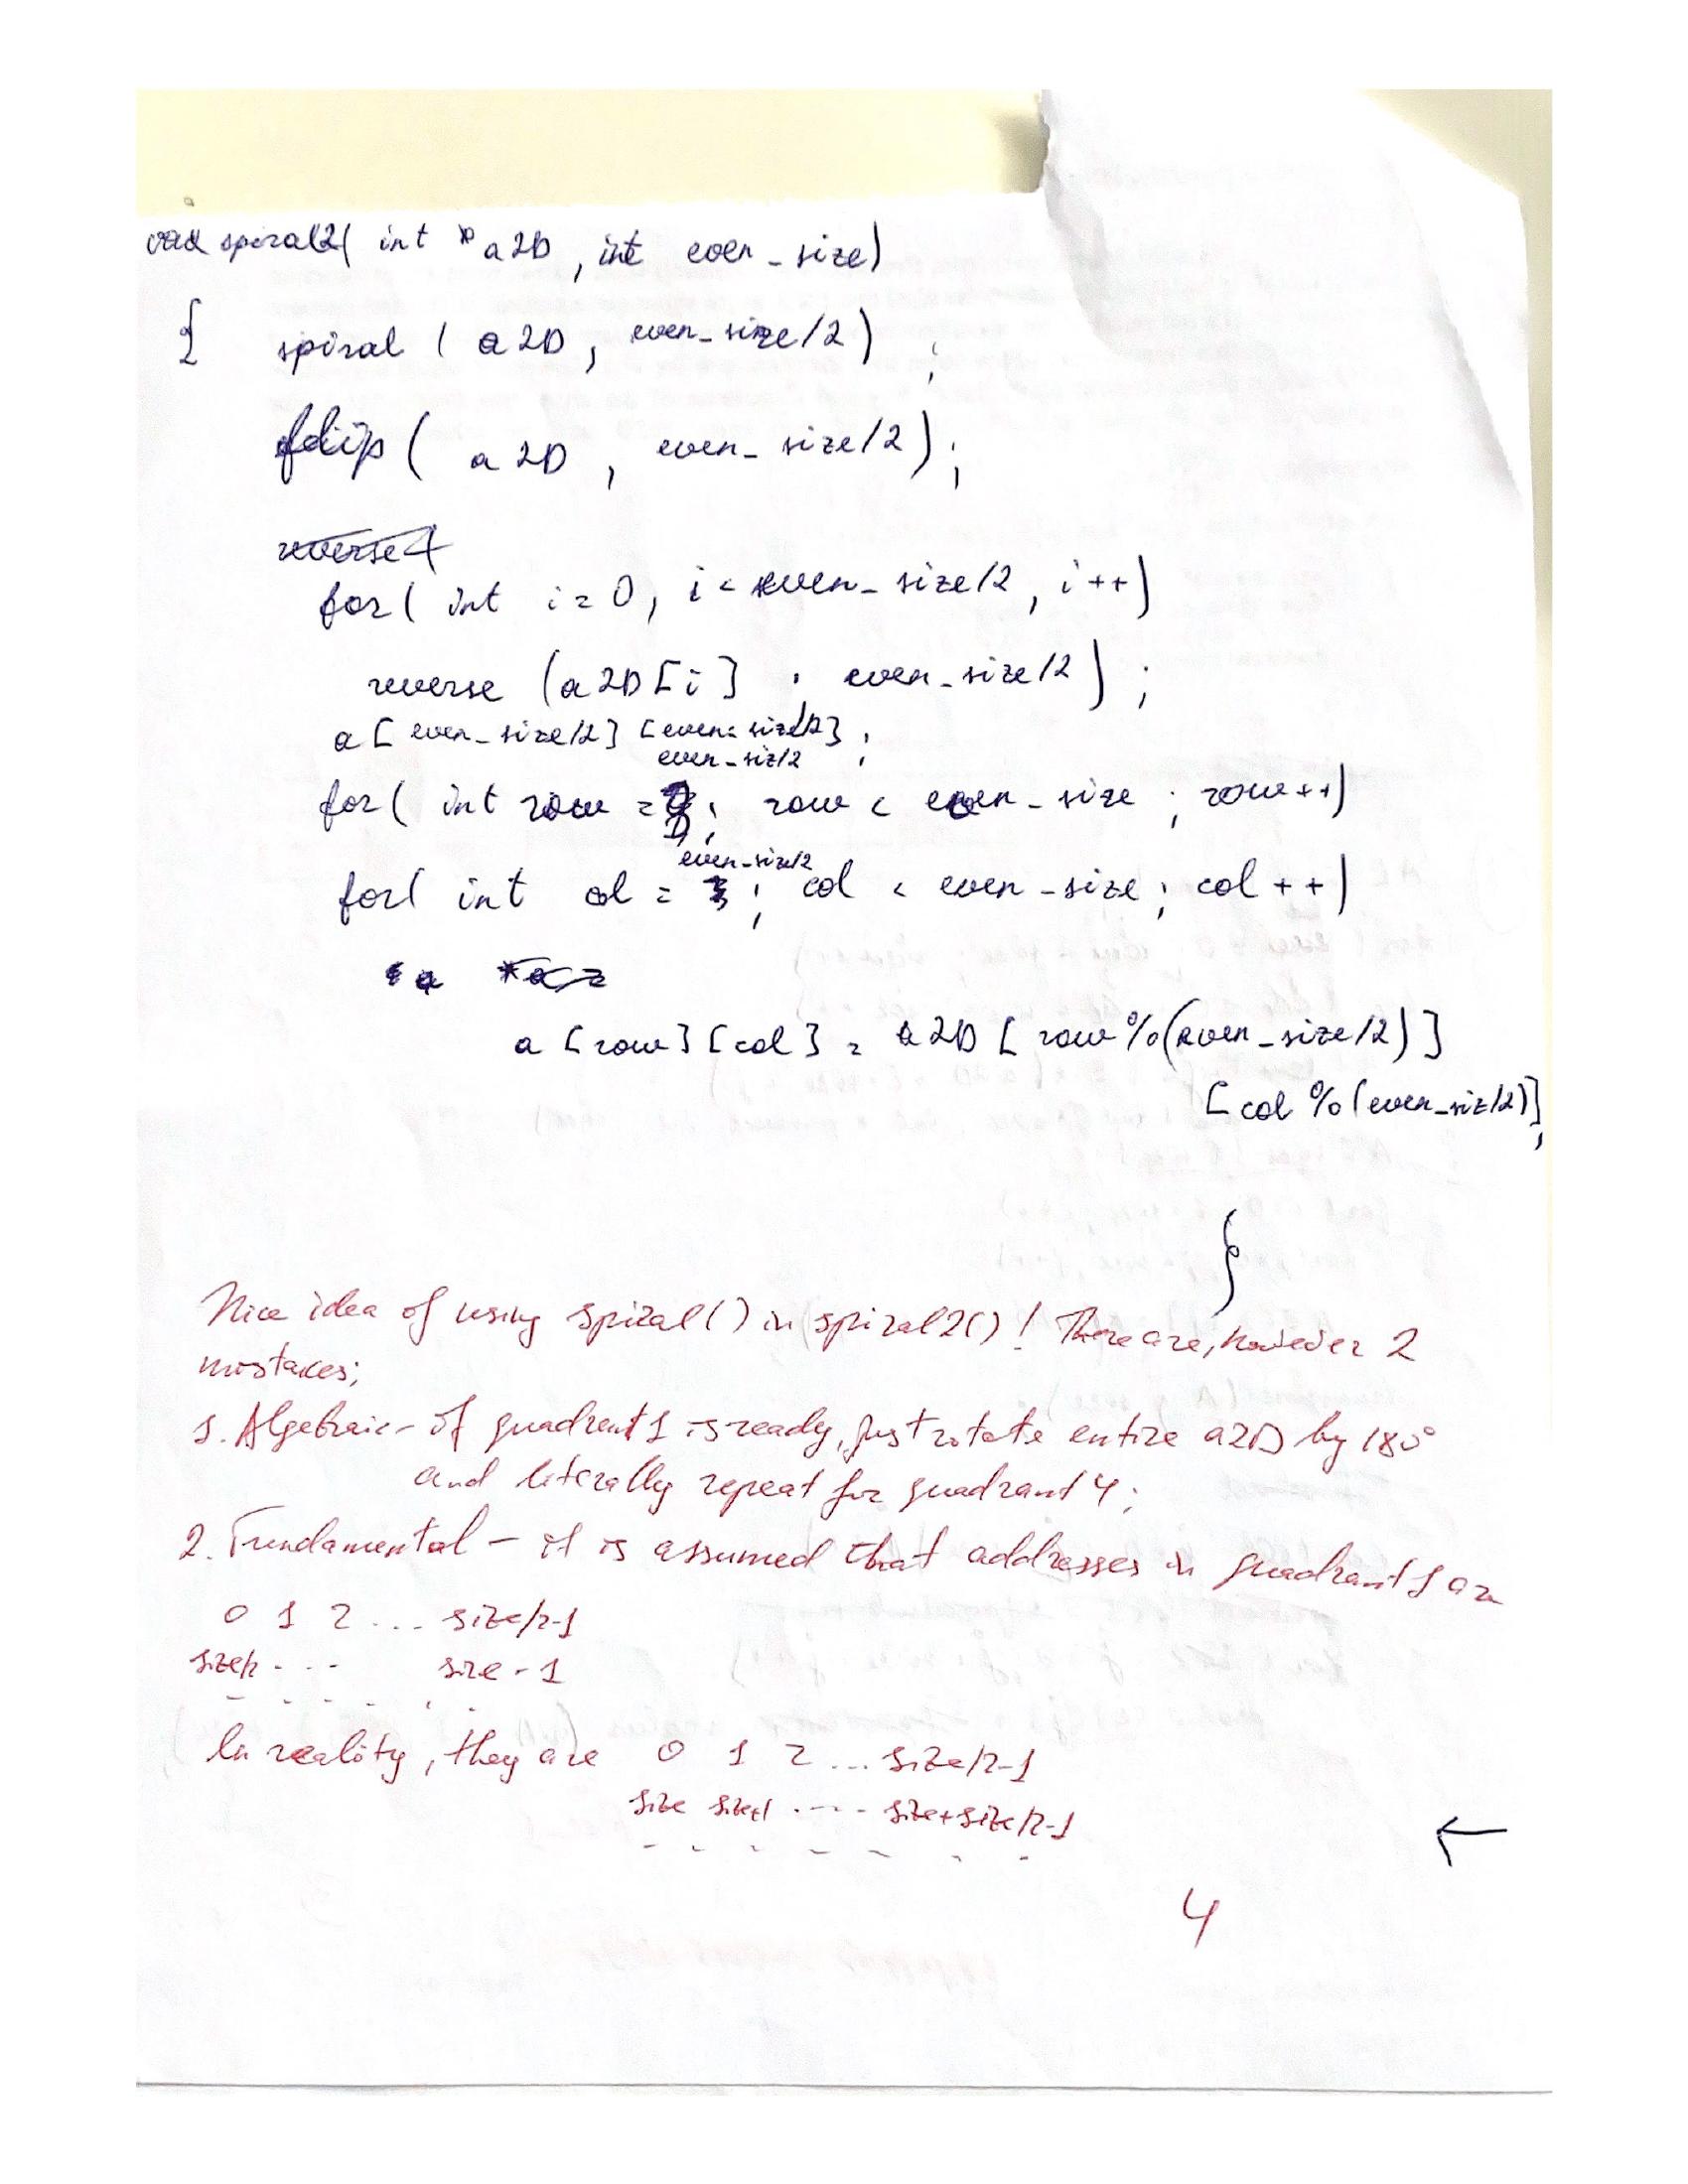 void spiral2( int *a2D, int even_size)
{ spiral ( a2D, even_size/2) ;
flip( a2D , even_size/2);
reverse(
for( int i=0, i< even_size/2, i++)
reverse (a2D[i] , even_size/2) ;
a[ even_size/2] [even_size/2] ;
even_siz/2
for( int row = ; row < even_size ; row++)
even_size/2
for( int col = ; col < even_size ; col++)
*a =
a [row] [col] = a2D [ row%(even_size/2)]
[col %(even_siz/2)];
}
Nice idea of using spiral() in spiral2()! There are, however 2
mistakes;
1. Algebraic - if quadrant 1 is ready, just rotate entire a2D by 180°
and literally repeat for quadrant 4;
2. Fundamental - it is assumed that addresses in quadrant 1 are
0 1 2 ... size/2-1
size/2 ... size-1
In reality, they are 0 1 2 ... size/2-1
size size+1 .... size+size/2-1
←
4